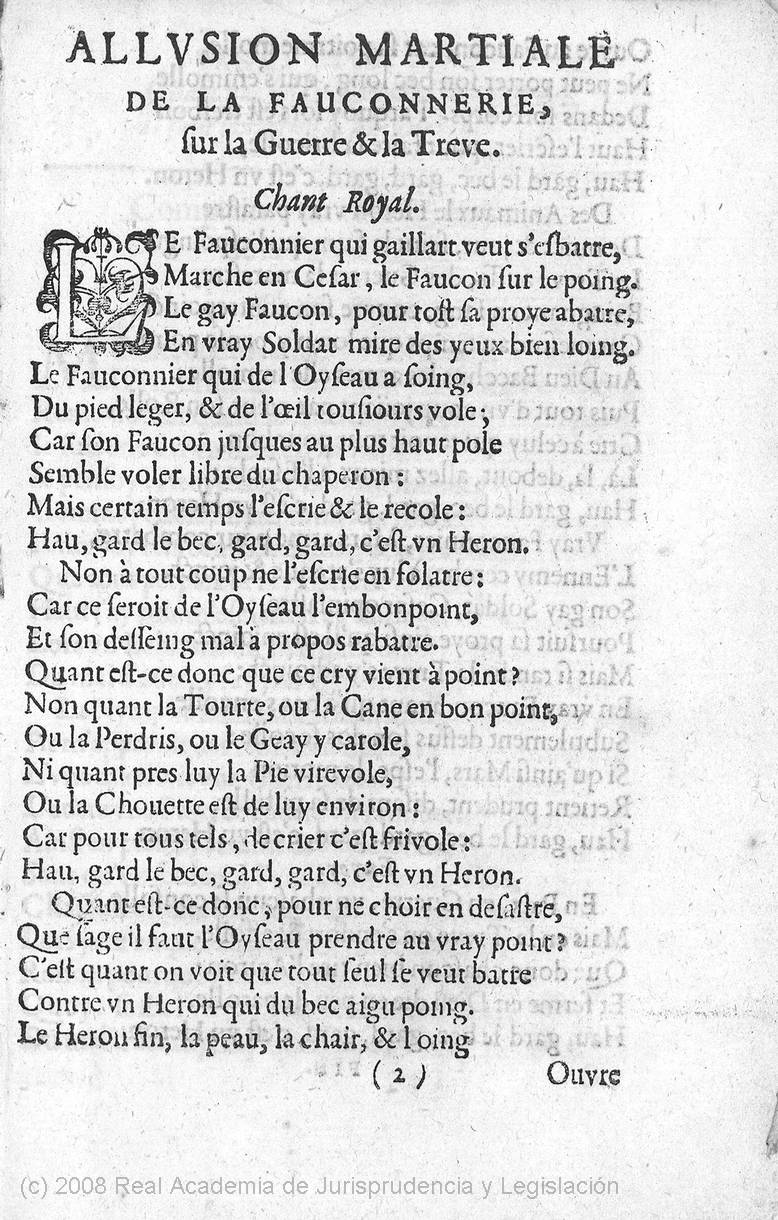 ALLVSION MARTIALE
DE LA FAUCONNERIE,
ſur la Guerre & la Treve.
Chant Royal.
LE Fauconnier qui gaillart veut s'eſbatre,
Marche en Ceſar, le Faucon ſur le poing.
Le gay Faucon, pour toſt ſa proye abatre,
En vray Soldat mire des yeux bien loing.
Le Fauconnier qui de l'Oyſeau a ſoing,
Du pied leger, & de l'œil touſiours vole;
Car ſon Faucon juſques au plus haut pole
Semble voler libre du chaperon:
Mais certain temps l'eſcrie & le recole:
Hau, gard le bec, gard, gard, c'eſt vn Heron.
Non à tout coup ne l'eſcrie en folatre:
Car ce ſeroit de l'Oyſeau l'embonpoint,
Et ſon deſſeing mal à propos rabatre.
Quant eſt-ce donc que ce cry vient à point?
Non quant la Tourte, ou la Cane en bon point,
Ou la Perdris, ou le Geay y carole,
Ni quant pres luy la Pie virevole,
Ou la Chouette eſt de luy environ:
Car pour tous tels, de crier c'eſt frivole:
Hau, gard le bec, gard, gard, c'eſt vn Heron.
Quant eſt-ce donc, pour ne choir en deſaſtre,
Que ſage il faut l'Oyſeau prendre au vray point?
C'eſt quant on voit que tout ſeul ſe veut batre
Contre vn Heron qui du bec aigu poing.
Le Heron fin, la peau, la chair, & l oing
(2) Ouvre
(c) 2008 Real Academia de Jurisprudencia y Legislación